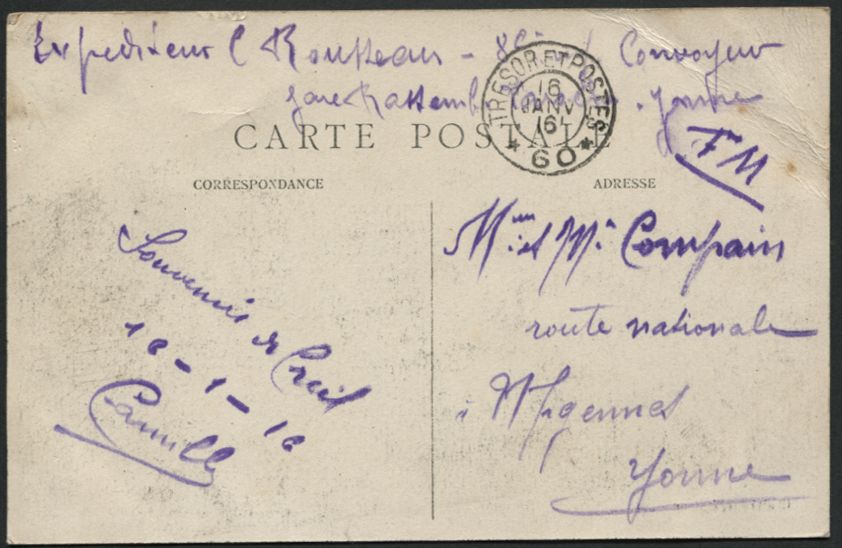 Expediteur C Rousseau - Convoyeur
Gare Rassembt Yonne
TRESOR ET POSTES
16
JANV
16
* 60 *
CARTE POSTALE
FM
CORRESPONDANCE
ADRESSE
Souvenir de Creil
16-1-16
Camille
Mme et Mr Compain
route nationale
à Migennes
Yonne